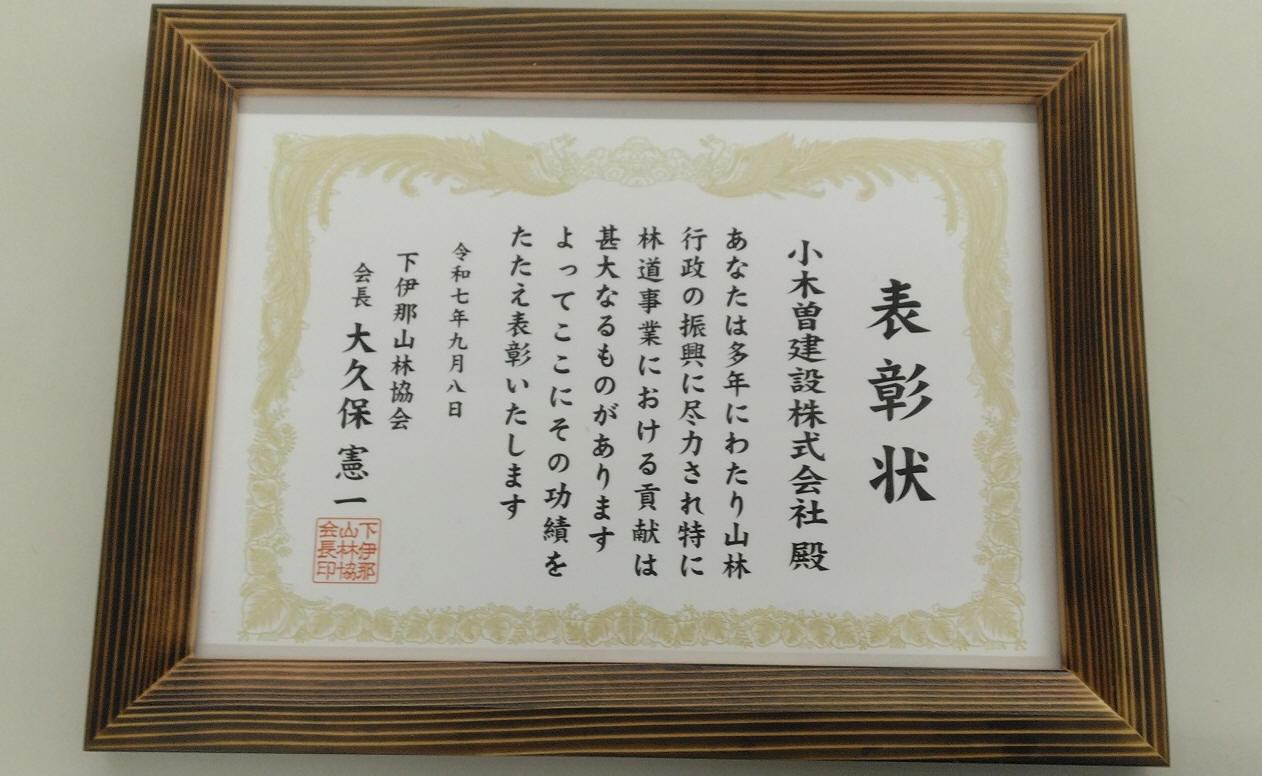 表彰状
小木曽建設株式会社 殿
あなたは多年にわたり山林
行政の振興に尽力され特に
林道事業における貢献は
甚大なるものがあります
よってここにその功績を
たたえ表彰いたします
令和七年九月八日
下伊那山林協会
会長 大久保 憲一
下伊那
山林協
会長印